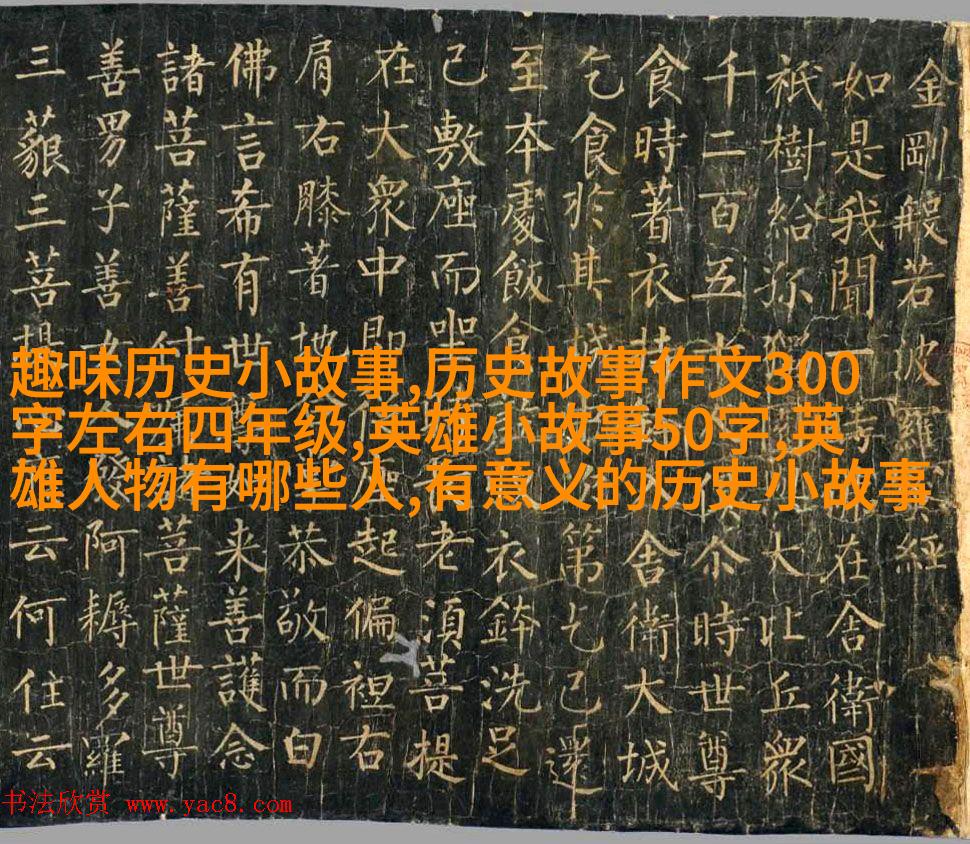 趣味历史小故事,历史故事作文300
字左右四年级,英雄小故事50字,英
雄人物有哪些人,有意义的历史小故事
金剛般若波羅經
如是我聞一在舍衛國
祇樹給孤大比丘眾
千二百五十尒時世尊
食時著衣持舍衛大城
乞食於其城第乞已還
至本處飯食衣鉢洗足
已敷座而坐老須菩提
在大眾中即從起偏袒右
肩右膝著地恭敬而白
佛言希有世来善護念
諸菩薩善付菩薩世尊
善男子善女人發阿耨多羅
三藐三菩提云何住云
书法欣赏 www.yac8.com